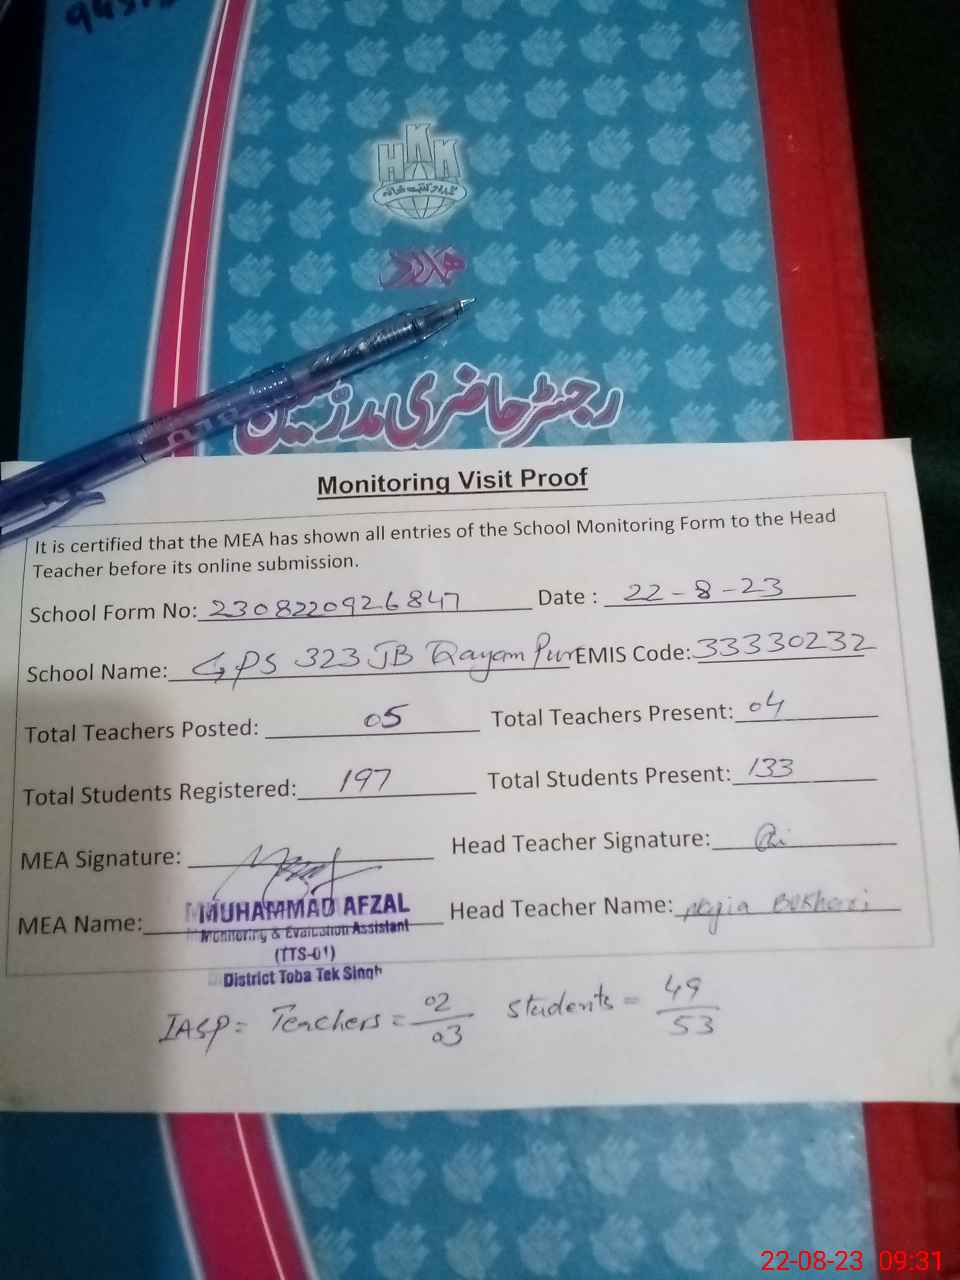 HKK
ہمدرد کتب خانہ
ہمدرد
رجسٹر حاضری مدرسین
Monitoring Visit Proof
It is certified that the MEA has shown all entries of the School Monitoring Form to the Head
Teacher before its online submission.
School Form No: 2308220926847 Date : 22-8-23
School Name: GPS 323 JB Qayam Pur EMIS Code: 33330232
Total Teachers Posted: 05 Total Teachers Present: 04
Total Students Registered: 197 Total Students Present: 133
MEA Signature: Head Teacher Signature:
MEA Name: MUHAMMAD AFZAL Head Teacher Name: Bukhari
Monitoring & Evaluation Assistant
(TTS-01)
District Toba Tek Singh
IASP= Teachers = 02/03 Students = 49/53
22-08-23 09:31